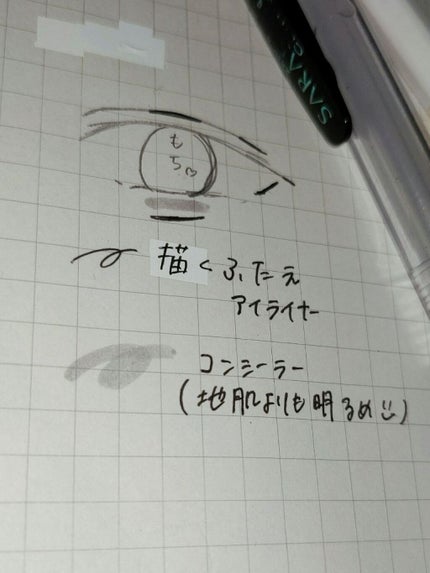 SARASA
も
ち♡
描くふたえ
アイライナー
コンシーラー
(地肌よりも明るめ☺)